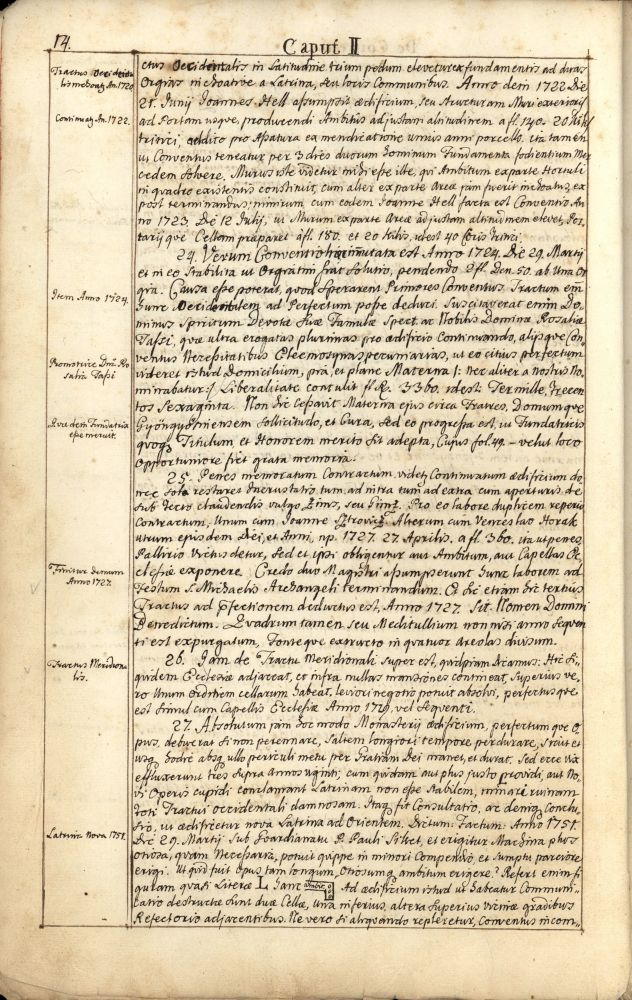 14.
Caput II
Tractus Occidentalis inchoatq An. 1720.
Continuatq An. 1722.
Item Anno 1724.
Promotrice Dnâ Rosaliâ Tassi
Quæ dein Fundatrix esse meruit.
Finitur demum Anno 1727.
Tractus Meridionalis.
Latrina Nova 1751.
ctus Occidentalis in Latitudine trium pedum elevetur ex fundamentis ad duas
Orgias inchoative a Latrina, seu locis Communibus. Anno dein 1722 Die
21. Junij Joannes Hell assumpsit ædificium, seu structuram Muri exterioris
ad Portam usque, producendi Ambitus adjustam altitudinem a fl. 140. 20 Kil.
tritici, addito pro Assatura ex mendicatione unius anni porcello. ita tamen
ut Conventus teneatur per 3 dies duorum hominum Fundamenta fodientium Mer
cedem solvere. Murus iste videtur mihi esse ille, qui Ambitum ex parte Hortuli
in quadro existentis constituit, cum alter ex parte Areæ jam fuerit inchoatus, ex
post terminandus; nimirum cum eodem Joanne Hell facta est Conventio An
no 1723 Die 12 Julij, ut Murum ex parte Areæ adjustam altitudinem elevet, Por
tarijque Cellam præparet à fl. 180. et 20 Kilis, idest 40 Coris tritici.
24. Verum Conventio hæc immutata est Anno 1724. Die 29. Martij
et in eo stabilita ut Orgiatim fiat solutio, pendendo 2 fl. Den. 50. ab una Or
gia. Causa esse poterat, quod sperarent Primores Conventus. Tractum em
hunc Occidentalem ad Perfectum posse deduci. Suscitaverat enim Do
minus Spiritum Devotæ suæ Famulæ Spect. ac Nobilis Dominæ Rosaliæ
Tassi, quæ ultra erogatas plurimas pro ædificio Continuando, alijsque Con
ventus Necessitatibus Eleemosynas pecuniarias, ut eo citius perfectum
videret istud Domicilium, pia, et plane Materna /: nec aliter a nostris No
minabatur :/ Liberalitate contulit fl. R. 3360. idest: Ter mille, trecen
tos sexaginta. Non hic cessavit Materna ejus circa Fratres, Domumque
Gyöngyösiensem sollicitudo, et Cura, sed eo progressa est, ut Fundatricis
quoq Titulum, et Honorem merito sit adepta, Cujus fol. 49. velut loco
Opportuniore fiet grata memoria.
25. Penes memoratum Contractum videtq Continuatum ædificium do
nec sola restaret Incrustatio tum ad intra tum ad extra cum aperturis de
sub tecto claudendis vulgo Zims, seu Gimz. Pro eo labore duplicem reperio
Contractum, Unum cum Joanne Petrovicz. Alterum cum Venceslao Horak
utrum ejusdem Dei, et Anni, np. 1727. 27. Aprilis, a fl. 360. ita ut penes
Pallirio Victus detur, sed et ipsi obligentur aut Ambitum, aut Capellas Ec
clesiæ exponere. Credo duo Magistri assumpserunt hunc laborem ad
Festum S. Michaelis Archangeli terminandum. Et sic etiam hic tertius
Tractus ad Pfectionem deductus est, Anno 1727. Sit Nomen Domini
Benedictum. Quadrum tamen, seu Meditullium non nisi anno sequen
ti est expurgatum, Fonteque exstructo in quatuor Areolas divisum.
26. Jam de Tractu Meridionali super est, quidpiam dicamus: Hic si
quidem Ecclesiæ adjaceat, et infra nullas mansiones contineat, superius ve
ro unum Ordinem cellarum habeat, leviori negotio potuit absolvi, perfectusque
est simul cum Capellis Ecclesiæ Anno 1729, vel sequenti.
27. Absolutum jam hoc modo Monasterij ædificium, perfectumque O
pus, debuerat si non perennare, saltem longiori tempore perdurare, sicut et
usq hodie absq ullo periculi metu per Gratiam Dei manet, et durat. Sed ecce vix
effluxerunt tres supra annos viginti; cum quidam aut plus justo providi, aut No
vi Operis cupidi conclamant Latrinam non esse stabilem, minari ruinam
toti Tractui occidentali damnosam. Itaq fit Consultatio, ac deniq Conclu
sio, ut ædificetur nova Latrina ad Orientem. Dictum: Factum: Anno 1751.
Die 29. Martij sub Guardianatu P. Pauli et erigitur Machina plus
otiosa, quam Necessaria, potuit quippe in minori Compendio, et sumptu parciore
erigi. Ut quid fuit opus tam longum, Otiosumq ambitum erigere? Refert enim fi
guram quasi Literæ L hanc Ad ædificium istud ut habeatur Communi
catio destructæ sunt duæ Cellæ, Una inferius, altera superius vicinæ gradibus
Refectorio adjacentibus. Ne vero si aliquando repleretur, Conventus incom